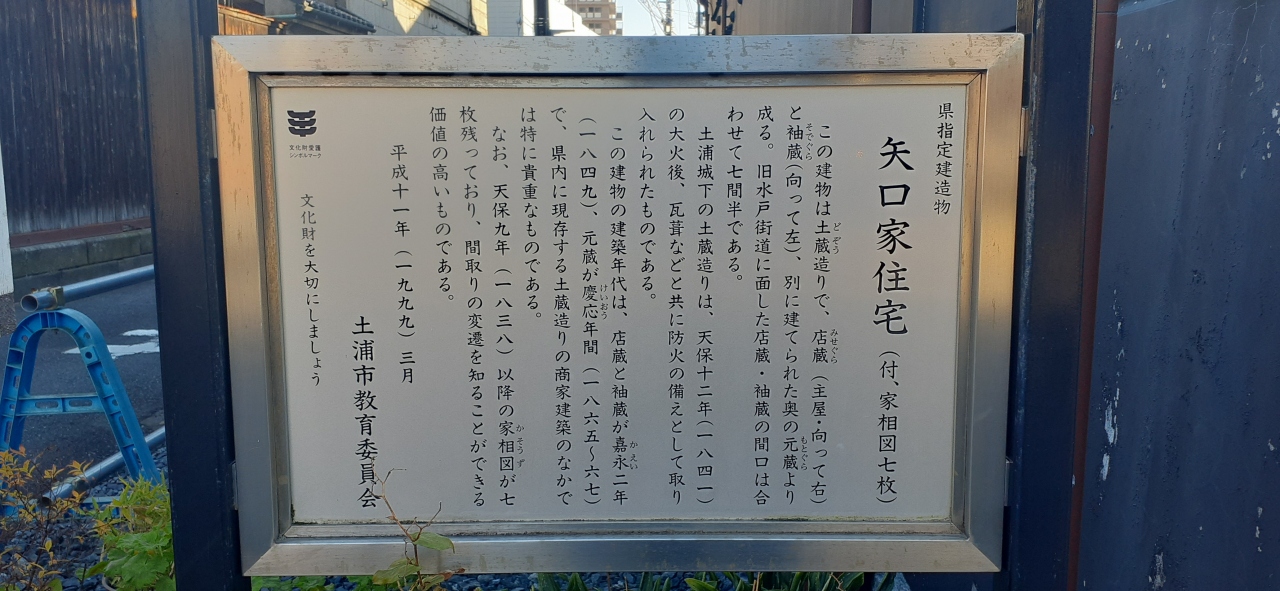 県指定建造物
矢口家住宅（付、家相図七枚）
この建物は土蔵造りで、店蔵（主屋・向って右）
と袖蔵（向って左）、別に建てられた奥の元蔵より
成る。旧水戸街道に面した店蔵・袖蔵の間口は合
わせて七間半である。
土浦城下の土蔵造りは、天保十二年（一八四一）
の大火後、瓦葺などと共に防火の備えとして取り
入れられたものである。
この建物の建築年代は、店蔵と袖蔵が嘉永二年
（一八四九）、元蔵が慶応年間（一八六五〜六七）
で、県内に現存する土蔵造りの商家建築のなかで
は特に貴重なものである。
なお、天保九年（一八三八）以降の家相図が七
枚残っており、間取りの変遷を知ることができる
価値の高いものである。
平成十一年（一九九九）三月
土浦市教育委員会
文化財を大切にしましょう
文化財愛護
シンボルマーク
どぞう
みせぐら
そでぐら
もとぐら
かえい
けいおう
かそうず